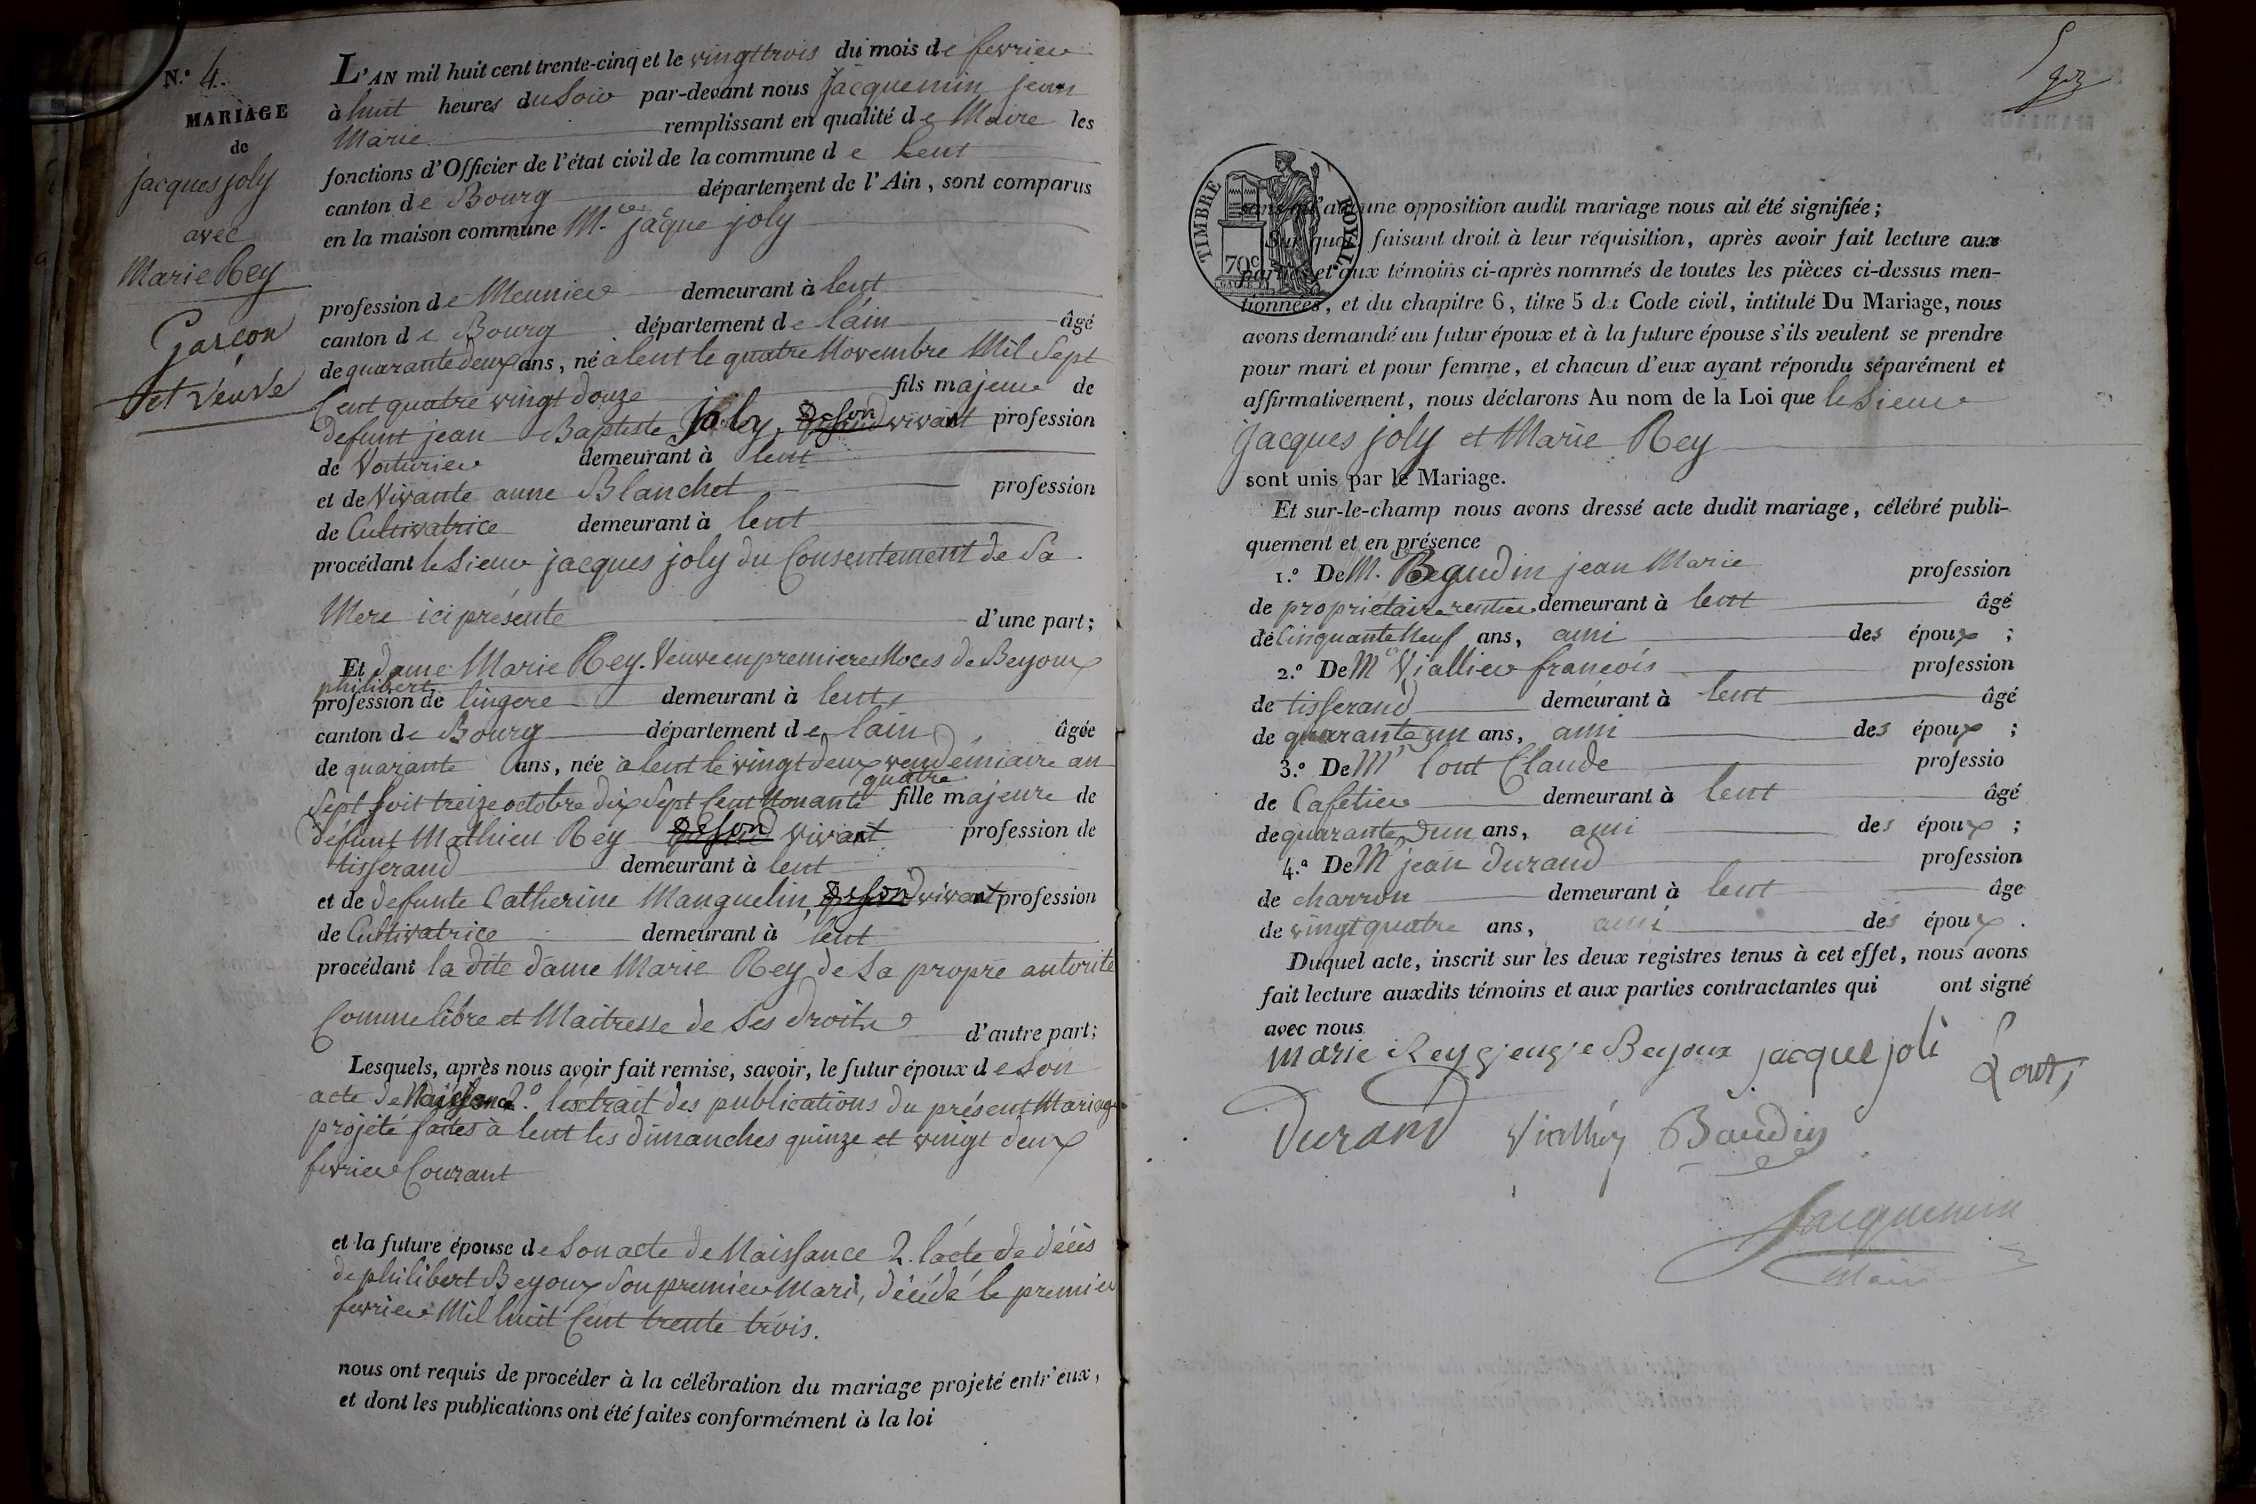 N.º 4.
MARIAGE
de
jacques joly
avec
Marie Rey
Garçon
et veuve
L'AN mil huit cent trente-cinq et le vingttrois du mois de fevrier
à huit heures du Soir par-devant nous Jacquemin jean
Marie remplissant en qualité de Maire les
fonctions d'Officier de l'état civil de la commune de Lent
canton de Bourg département de l'Ain, sont comparus
en la maison commune M. jacque joly
profession de Meunier demeurant à lent
canton de Bourg département de lain âgé
de quarante deux ans, né à lent le quatre Novembre Mil Sept
Cent quatre vingt douze fils majeur de
defunt jean Baptiste Joly, de son vivant profession
de Voiturier demeurant à lent
et de Vivante anne Blanchet profession
de Cultivatrice demeurant à lent
procédant le Sieur jacques joly du Consentement de Sa
Mere ici présente d'une part;
Et dame Marie Rey. Veuve en premieres Noces de Beyoux
philibert
profession de lingere demeurant à lent
canton de Bourg département de lain âgée
de quarante ans, née à lent le vingt deux vendémiaire an
quatre
Sept soit treize octobre dix Sept Cent Nonante fille majeure de
defunt Mathieu Rey de son vivant profession de
tisserand demeurant à lent
et de defunte Catherine Manguelin, de son vivant profession
de Cultivatrice demeurant à lent
procédant la dite dame Marie Rey de Sa propre autorité
Comme libre et Maitresse de Ses droits d'autre part;
Lesquels, après nous avoir fait remise, savoir, le futur époux de Son
acte de Naissance 2.º lextrait des publications du présent Mariage
projeté faites à lent les dimanches quinze et vingt deux
fevrier Courant
et la future épouse de Son acte de Naissance 2. lacte de décès
de philibert Beyoux Son premier Mari, décédé le premier
fevrier Mil huit Cent trente trois.
nous ont requis de procéder à la célébration du mariage projeté entr'eux,
et dont les publications ont été faites conformément à la loi
5
TIMBRE ROYAL
70 c
sans qu'aucune opposition audit mariage nous ait été signifiée;
Sur quoi, faisant droit à leur réquisition, après avoir fait lecture aux
parties et aux témoins ci-après nommés de toutes les pièces ci-dessus men-
tionnées, et du chapitre 6, titre 5 du Code civil, intitulé Du Mariage, nous
avons demandé au futur époux et à la future épouse s'ils veulent se prendre
pour mari et pour femme, et chacun d'eux ayant répondu séparément et
affirmativement, nous déclarons Au nom de la Loi que le Sieur
Jacques joly et Marie Rey
sont unis par le Mariage.
Et sur-le-champ nous avons dressé acte dudit mariage, célébré publi-
quement et en présence
1.º De M. Beguidin jean Marie profession
de propriétaire rentier demeurant à lent âgé
de Cinquante Neuf ans, ami des époux ;
2.º De M Viallier francois profession
de tisserand demeurant à lent âgé
de quarante un ans, ami des époux ;
3.º De Mr Cont Claude professio
de Cafetier demeurant à lent âgé
de quarante Dun ans, ami des époux ;
4.º De Mr jean Durand profession
de charron demeurant à lent âge
de vingt quatre ans, ami des époux .
Duquel acte, inscrit sur les deux registres tenus à cet effet, nous avons
fait lecture auxdits témoins et aux parties contractantes qui ont signé
avec nous
marie Rey Beyoux jacque joli
Durand Baudin
Jacquemin
Maire